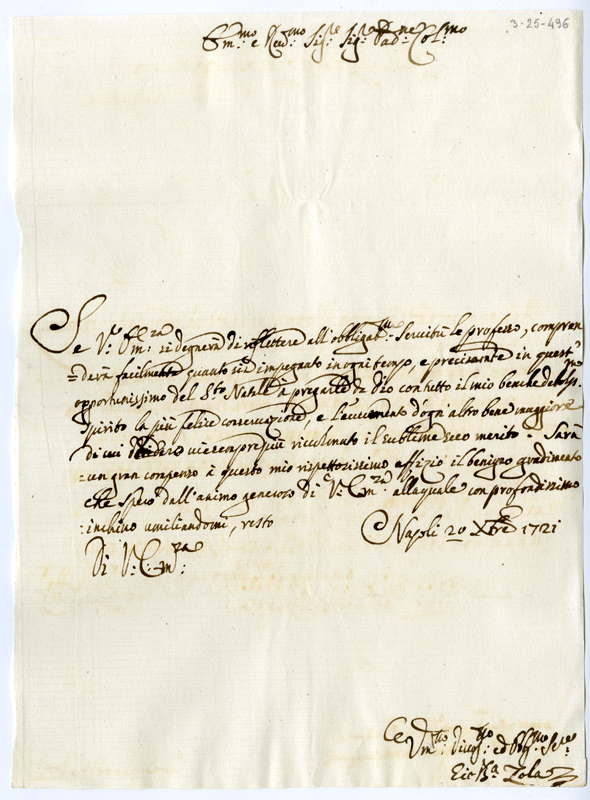 3-25-496
Em:mo e Rev:mo Sig:re Sig:re Padne Col:mo
Se V: Em:za si degnerà di riflettere all' obbligat:ma Servitù le professo, compren
=derà facilmente quanto sia impegnato in ogni tempo, e precisamte in quest'
opportunissimo del Sto Natale à pregarle da Dio con tutto il mio benche debolis:mo
Spirito la più felice conservazione, e l'evento d'ogn' altro bene maggiore
di cui desidero sempre più ricolmato il sublime Suo merito. Sarà
un gran compenso à questo mio rispettosissimo offizio il benigno gradimento
che spero dall'animo generoso di V: Em:za alla quale con profondissimo
inchino umiliandomi, resto
Napoli 20 Xbre 1721
Di V: Em:za
Um:mo Div:mo ed Obb:mo Ser:re
Gio Bta Zola